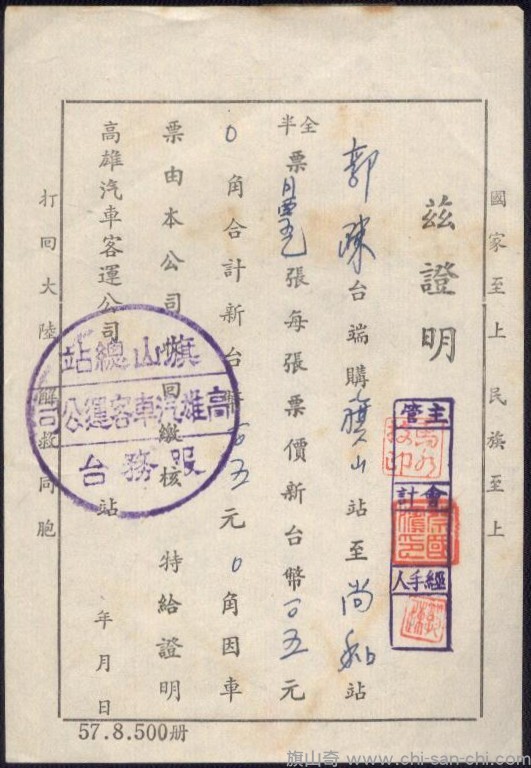 國家至上 民族至上
茲證明
郭陳台端購旗山站至尚和站
全半票張每張票價新台幣五元
0角合計新台幣五元0角因車
票由本公司收回繳核 特給證明
高雄汽車客運公司 站 年月日
打回大陸 解救同胞
主管
會計
經手人
旗山總站
高雄汽車客運公司
服務台
57.8.500册
旗山奇 www.chi-san-chi.com